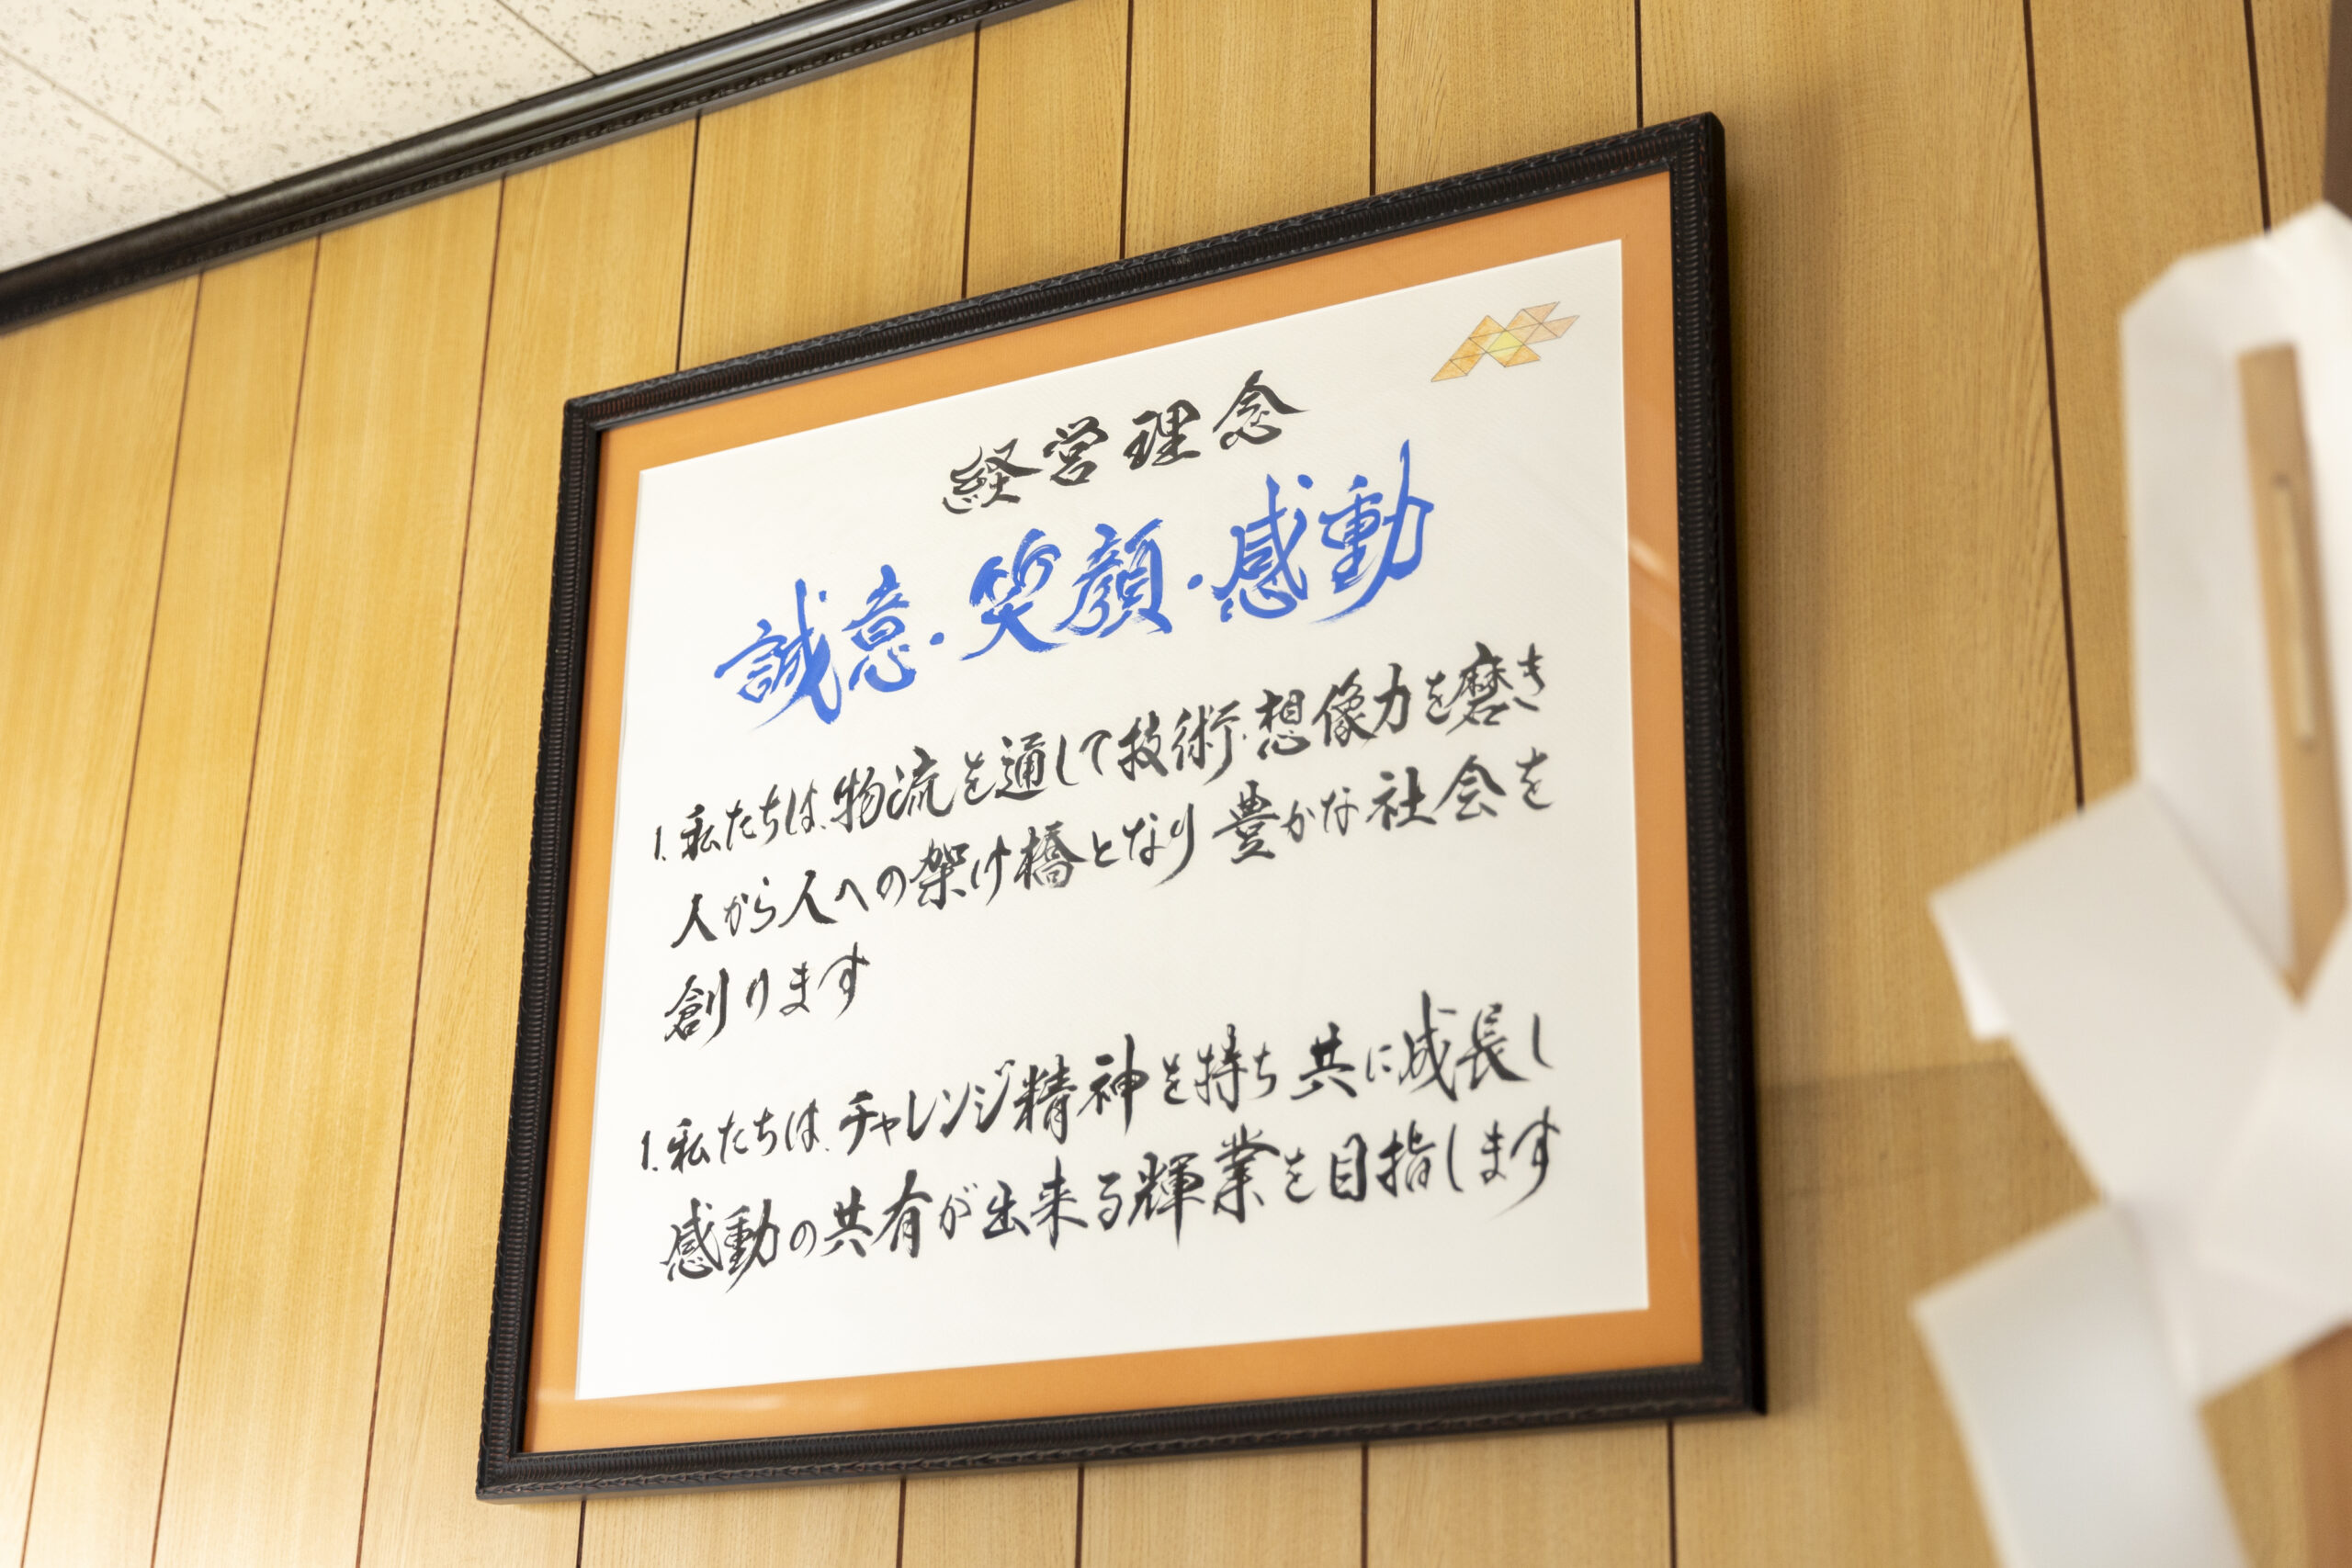 経営理念
誠意・笑顔・感動
1. 私たちは、物流を通して技術・想像力を磨き
人から人への架け橋となり豊かな社会を
創ります
1. 私たちは、チャレンジ精神を持ち共に成長し
感動の共有が出来る輝業を目指します